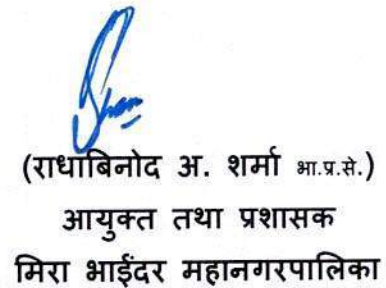 (राधाबिनोद अ. शर्मा भा.प्र.से.)
आयुक्त तथा प्रशासक
मिरा भाईंदर महानगरपालिका